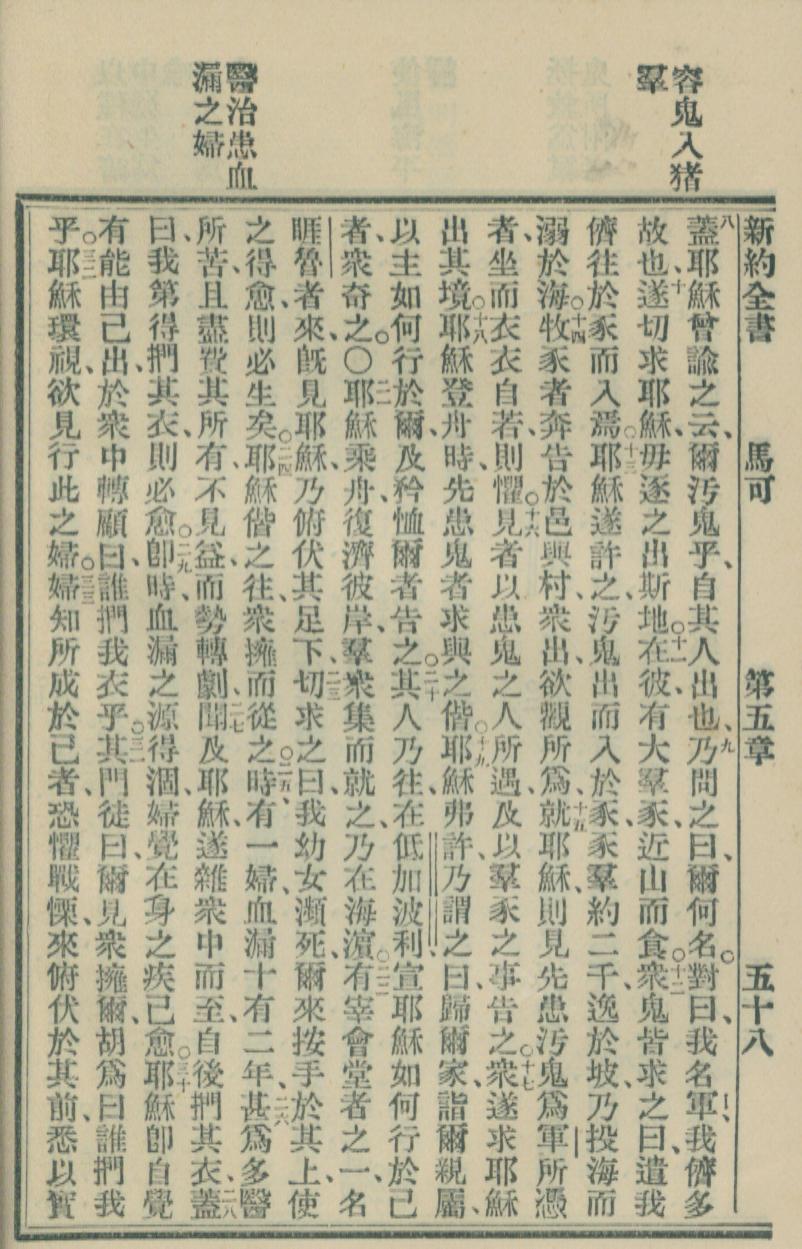 新約全書　馬可　第五章　五十八
容鬼入猪
羣
八蓋耶穌曾諭之云、爾污鬼乎、自其人出也、九乃問之曰、爾何名。對曰、我名軍、我儕多
故也、十遂切求耶穌、毋逐之出斯地。十一在彼有大羣豕、近山而食。十二衆鬼皆求之曰、遣我
儕往於豕而入焉。十三耶穌遂許之、污鬼出而入於豕、豕羣約二千、逸於坡、乃投海而
溺於海。十四牧豕者奔告於邑與村、衆出、欲觀所爲、十五就耶穌、則見先患污鬼爲軍所憑
者、坐而衣衣自若、則懼。十六見者以患鬼之人所遇、及以羣豕之事告之。十七衆遂求耶穌
出其境。十八耶穌登舟時、先患鬼者求與之偕。十九耶穌弗許、乃謂之曰、歸爾家、詣爾親屬、
以主如何行於爾、及矜恤爾者告之。二十其人乃往、在低加波利、宣耶穌如何行於己
者、衆奇之。〇二一耶穌乘舟、復濟彼岸、羣衆集而就之、乃在海濵。二二有宰會堂者之一、名
睚魯者來、旣見耶穌、乃俯伏其足下、二三切求之曰、我幼女瀕死、爾來按手於其上、使
之得愈、則必生矣。二四耶穌偕之往、衆擁而從之。二五時有一婦、血漏十有二年、二六甚爲多醫
所苦、且盡費其所有、不見益、而勢轉劇、二七聞及耶穌、遂雜衆中而至、自後捫其衣、二八蓋
曰、我第得捫其衣、則必愈。二九卽時血漏之源得涸、婦覺在身之疾已愈。三十耶穌卽自覺
有能由己出、於衆中轉顧曰、誰捫我衣乎。三一其門徒曰、爾見衆擁爾、胡爲曰誰捫我
乎。三二耶穌環視、欲見行此之婦。三三婦知所成於己者、恐懼戰慄、來俯伏於其前、悉以實
醫治患血
漏之婦